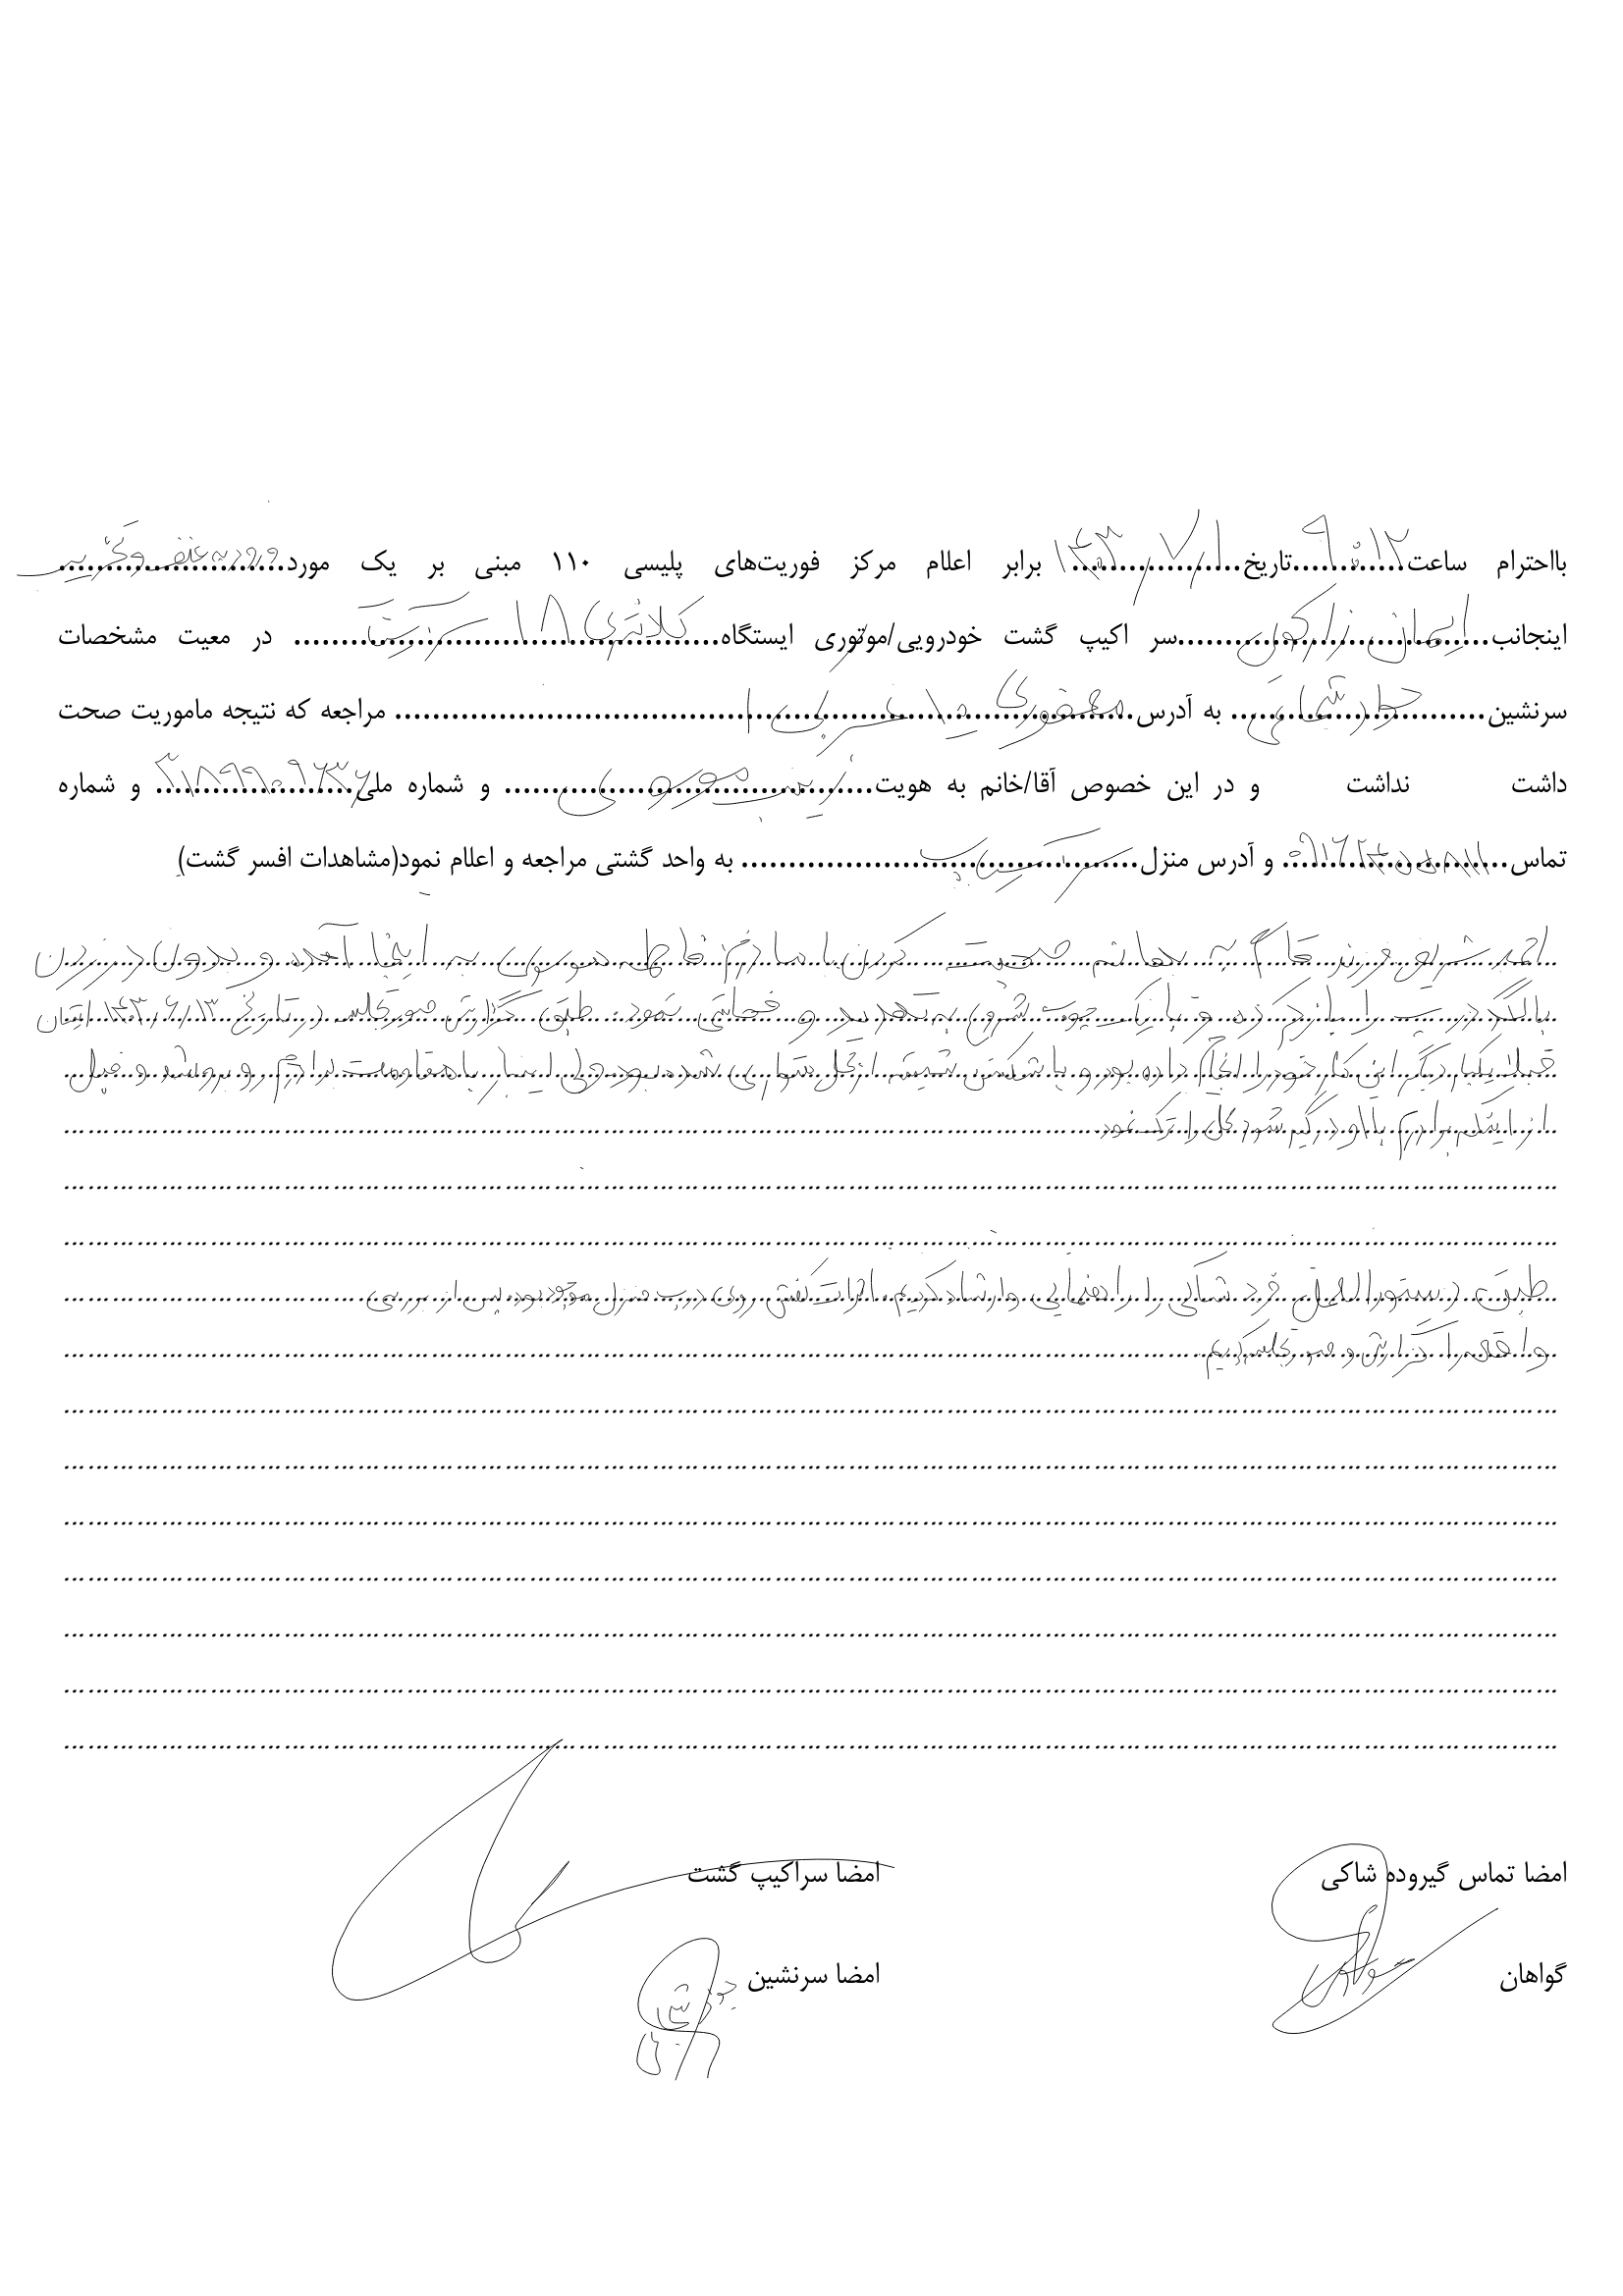 بااحترام ساعت ۹:۱۲ تاریخ ۱۴۰۳/۷/۱ برابر اعلام مرکز فوریت‌های پلیسی ۱۱۰ مبنی بر یک مورد ورود به عنف و تخریب
اینجانب ایمان سر اکیپ گشت خودرویی/موتوری ایستگاه کلانتری ۱۸ در معیت مشخصات
سرنشین به آدرس غربی مراجعه که نتیجه ماموریت صحت
داشت نداشت و در این خصوص آقا/خانم به هویت زینب موسوی و شماره ملی و شماره
تماس و آدرس منزل به واحد گشتی مراجعه و اعلام نمود(مشاهدات افسر گشت)
احمد شریفی فرزند به بهانه صحبت کردن با مادرم فاطمه موسوی به اینجا آمده و بدون در زدن
با لگد درب را باز کرده و با یک چوب شروع به تهدید و فحاشی نمود. طبق گزارش صورتجلسه در تاریخ ۱۴۰۳/۶/۱۳ ایشان
قبلا یکبار دیگر این کار خود را انجام داده بود و با شکستن شیشه از محل متواری شده بود ولی اینبار با مقاومت برادرم روبرو شد و قبل
از اینکه برادرم با او درگیر شود محل را ترک نمود.
طبق دستورالعمل فرد شاکی را راهنمایی و ارشاد کردیم. اثرات کفش روی درب منزل موجود بود. پس از بررسی
واقعه را گزارش و صورتجلسه کردیم
امضا تماس گیروده شاکی امضا سراکیپ گشت
گواهان امضا سرنشین